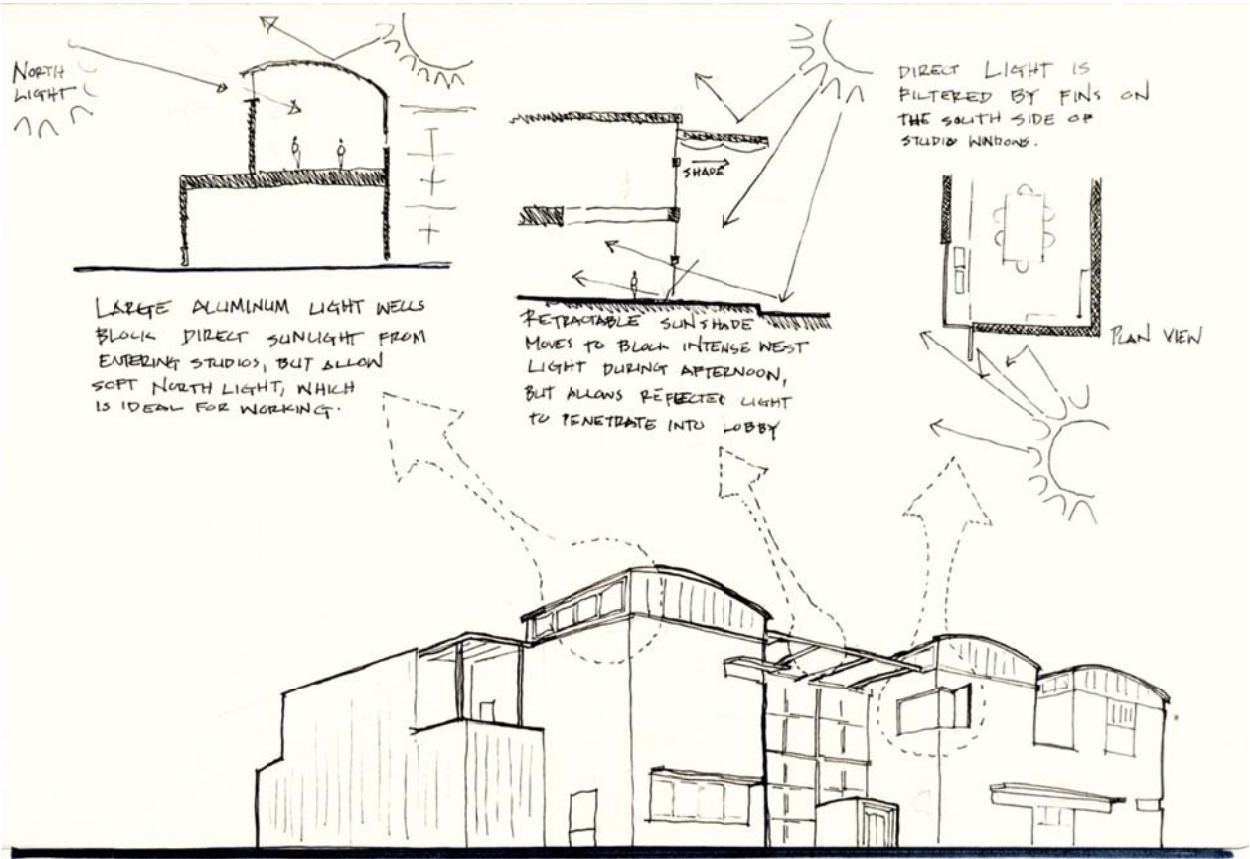 NORTH
LIGHT
LARGE ALUMINUM LIGHT WELLS
BLOCK DIRECT SUNLIGHT FROM
ENTERING STUDIOS, BUT ALLOW
SOFT NORTH LIGHT, WHICH
IS IDEAL FOR WORKING.
SHADE
RETRACTABLE SUNSHADE
MOVES TO BLOCK INTENSE WEST
LIGHT DURING AFTERNOON,
BUT ALLOWS REFLECTED LIGHT
TO PENETRATE INTO LOBBY
DIRECT LIGHT IS
FILTERED BY FINS ON
THE SOUTH SIDE OF
STUDIO WINDOWS.
PLAN VIEW